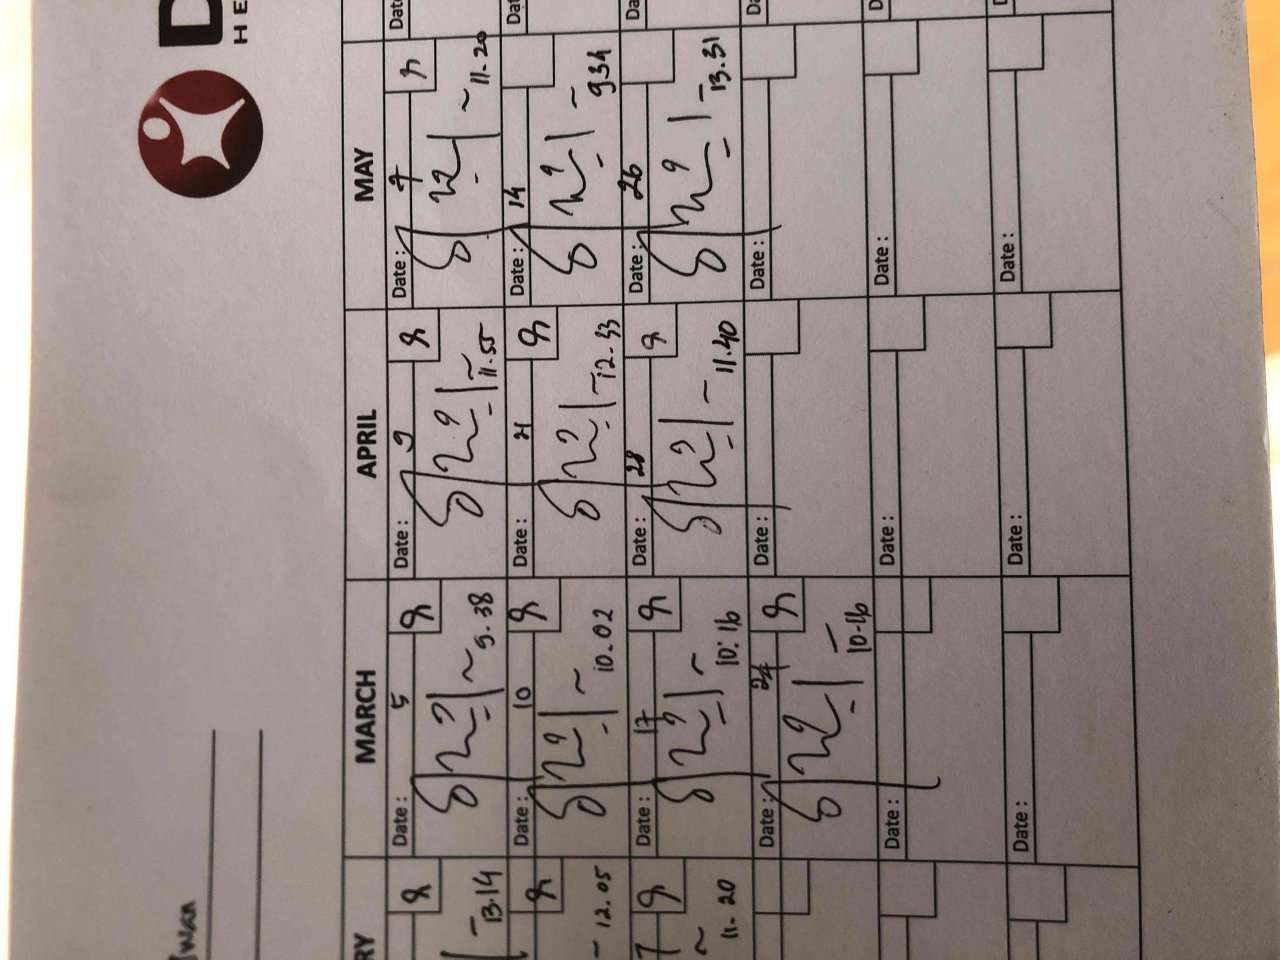 D
HE
RY MARCH APRIL MAY
Date : 5 Date : 9 Date : 7 Dat
13.14 9.38 11.55 11.20
Date : 10 Date : 21 Date : 14 Dat
12.05 10.02 12.33 9.34
7 Date : 17 Date : 28 Date : 26 Da
11.20 10.16 11.40 13.31
Date : 24 Date : Date : Da
10.16
Date : Date : Date : D
Date : Date : Date :